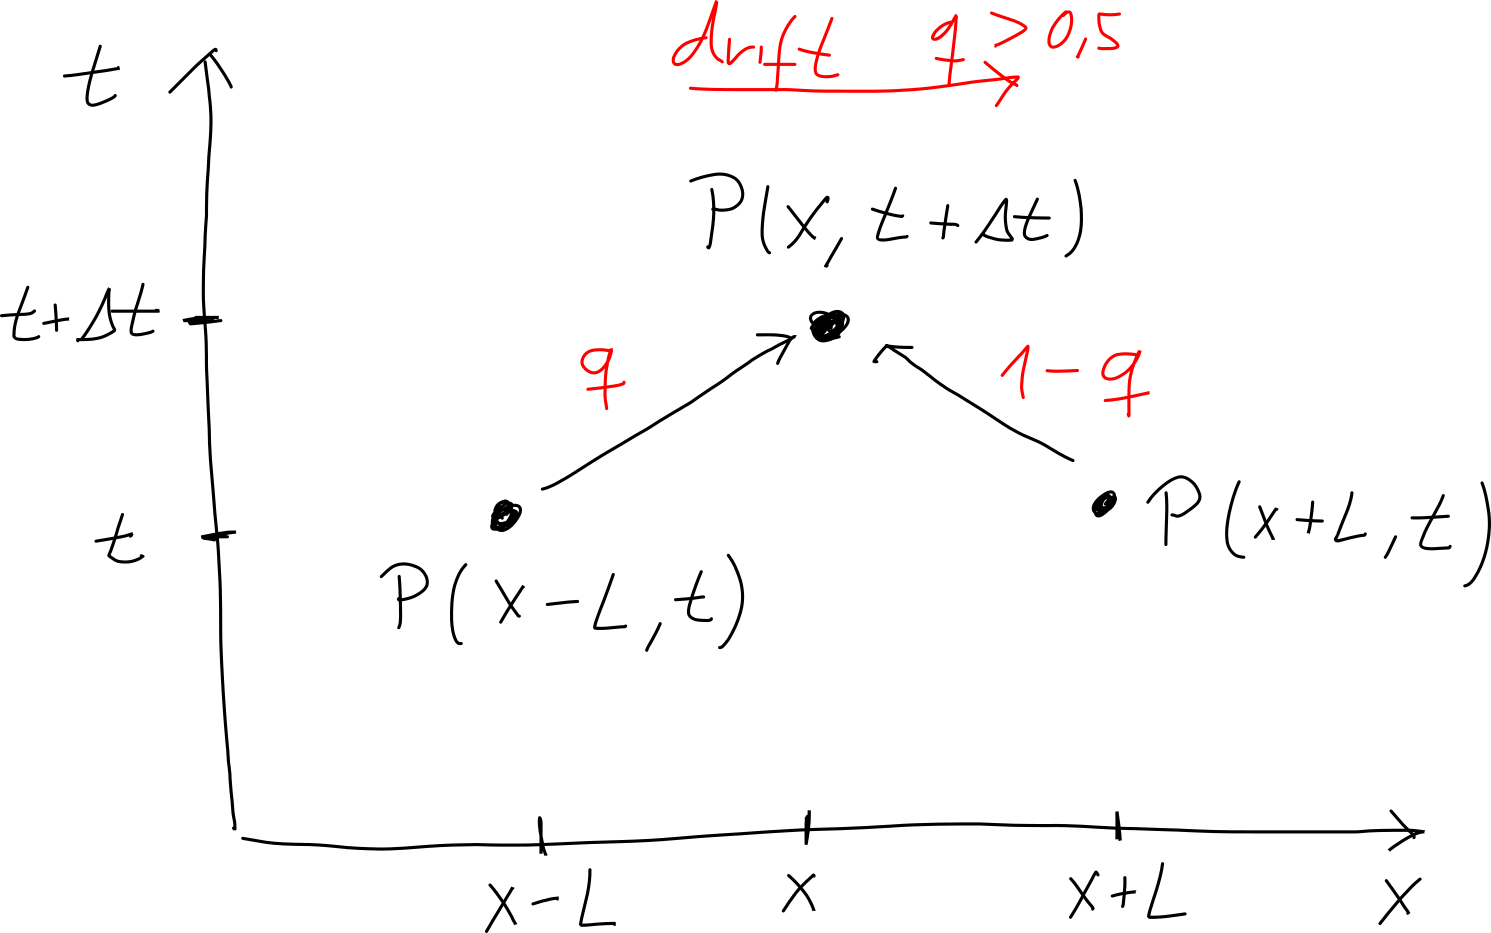 drift q > 0,5
t
P(x, t + Δt)
t+Δt
q
1-q
t
P(x+L,t)
P(x-L,t)
x-L
x
x+L
x